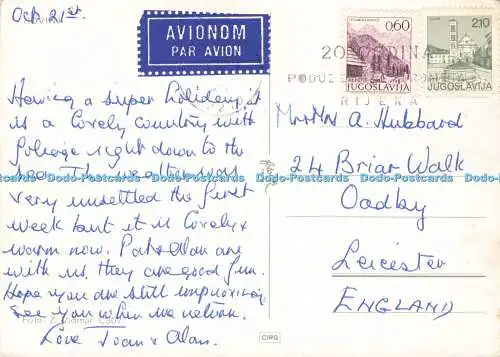 Oct 21st.
AVIONOM
PAR AVION
0.60
JUGOSLAVIJA
2.10
JUGOSLAVIJA
20 GODINA
RIJEKA
Having a super holiday, it
is a lovely country with
foliage right down to the
sea. The weather was
very unsettled the first
week but it is lovely &
warm now. Pat & Alan are
with us, they are good fun.
Hope you are still improving.
See you when we return.
Love Joan & Alan.
Mr & Mrs A. Hubbard
24 Briar Walk
Oadby
Leicester
ENGLAND
CIRG
Dodo-Postcards Dodo-Postcards Dodo-Postcards Dodo-Postcards Dodo-Postcards